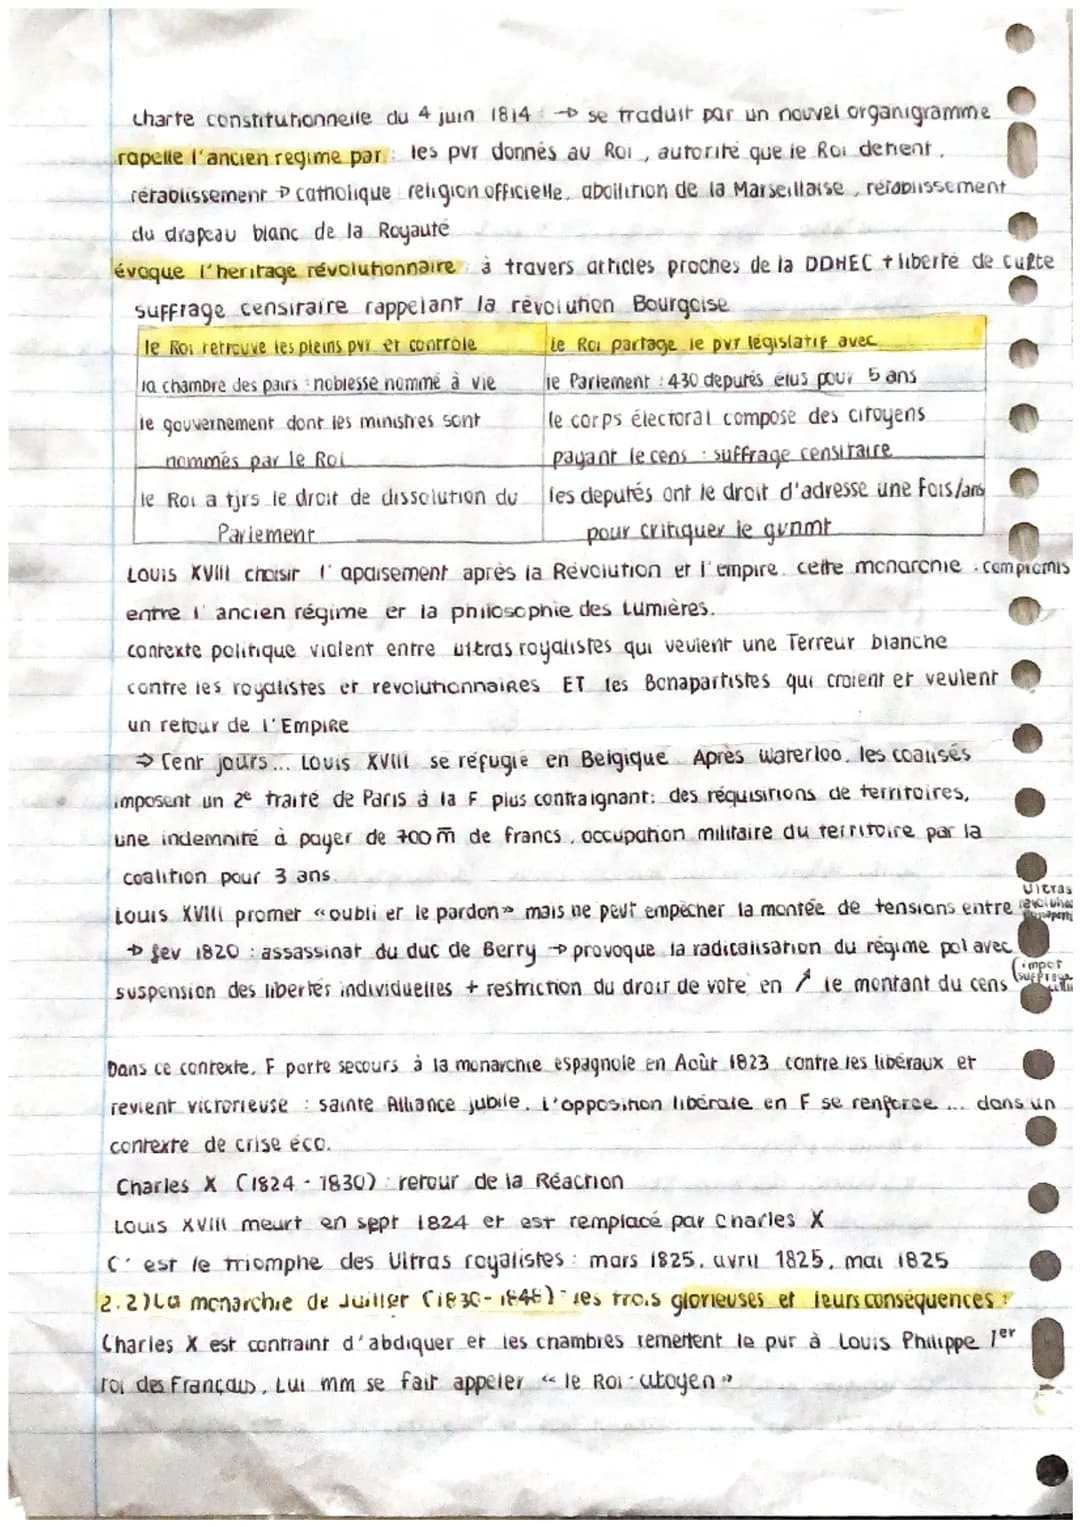 Charte constitutionnelle du 4 juin 1814 : → se traduit par un nouvel organigramme
rapelle l'ancien regime par : les pvr donnés au Roi, autorité que le Roi detient,
rétablissement → catholique religion officielle, abolition de la Marseillaise, rétablissement
du drapeau blanc de la Royauté
évoque l'heritage révolutionnaire à travers articles proches de la DDHEC + liberté de culte
suffrage censitaire rappelant la révolution Bourgoise
le Roi retrouve les pleins pvr et contrôle
le Roi partage le pvr législatif avec
la chambre des pairs : noblesse nommé à vie
le Parlement : 430 deputés élus pour 5 ans
le gouvernement dont les ministres sont
nommés par le Roi
le corps électoral composé des citoyens
payant le cens : suffrage censitaire
le Roi a tjrs le droit de dissolution du
Parlement
les deputés ont le droit d'adresse une fois/ans
pour critiquer le gvnmt
Louis XVIII choisit l'apaisement après la Révolution et l'empire. cette monarchie : compromis
entre l'ancien régime et la philosophie des Lumières.
contexte politique violent entre ultras royalistes qui veulent une Terreur blanche
contre les royalistes et revolutionnaires ET les Bonapartistes qui croient et veulent
un retour de l'Empire
⇒ Cent jours... Louis XVIII se réfugie en Belgique. Après Waterloo, les coalisés
imposent un 2e traité de Paris à la F plus contraignant: des réquisitions de territoires,
une indemnité à payer de 700 m de francs, occupation militaire du territoire par la
coalition pour 3 ans.
Louis XVIII promet «oubli et le pardon» mais ne peut empêcher la montée de tensions entre
ultras
→ fev 1820 : assassinat du duc de Berry → provoque la radicalisation du régime pol avec
suspension des libertés individuelles + restriction du droit de vote en ↗ le montant du cens
(impot
Dans ce contexte, F porte secours à la monarchie espagnole en Août 1823 contre les libéraux et
revient victorieuse : Sainte Alliance jubile. L'opposition libérale en F se renforce ... dans un
contexte de crise éco.
Charles X (1824 - 1830) : retour de la Réaction
Louis XVIII meurt en sept 1824 et est remplacé par Charles X
C'est le triomphe des Ultras royalistes : mars 1825, avril 1825, mai 1825
2.2) La monarchie de Juillet (1830-1848) : les trois glorieuses et leurs conséquences :
Charles X est contraint d'abdiquer et les chambres remettent le pvr à Louis Philippe 1er
roi des Français. Lui mm se fait appeler «le Roi-citoyen»